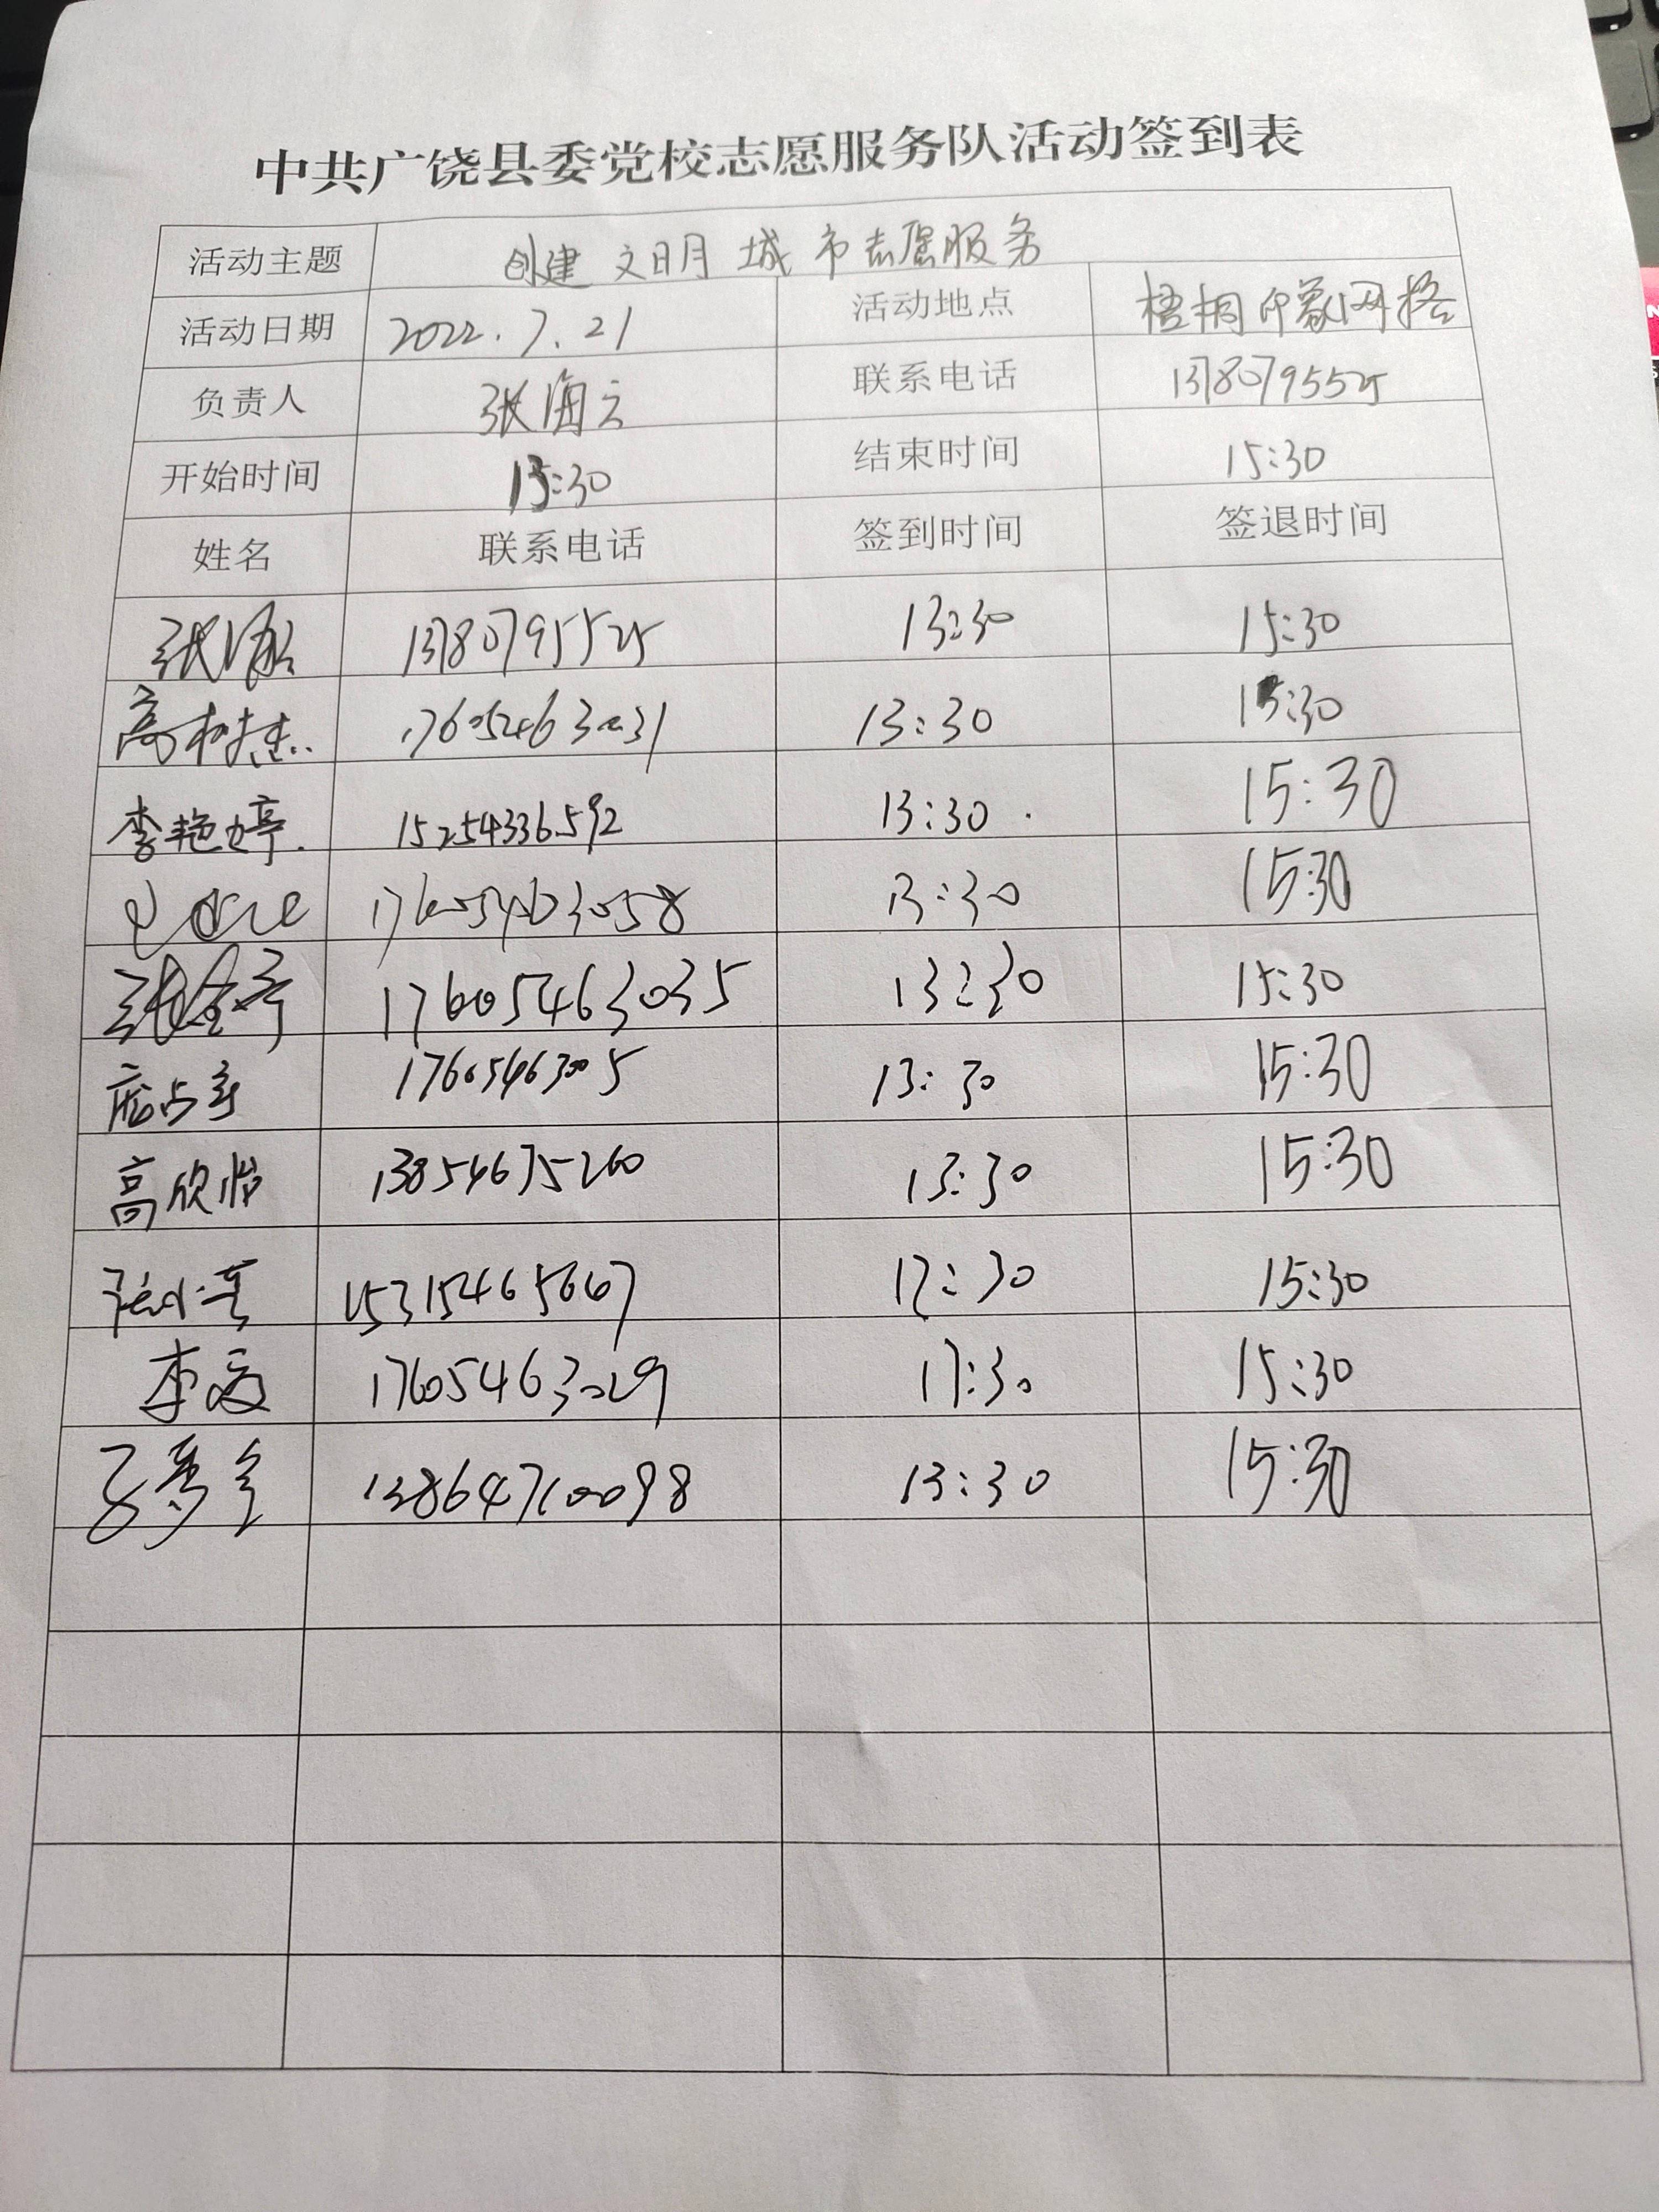 中共广饶县委党校志愿服务队活动签到表
活动主题 创建文明城市志愿服务
活动日期 2022.7.21 活动地点 梧桐印象网格
负责人 张海云 联系电话 13780795525
开始时间 13:30 结束时间 15:30
姓名 联系电话 签到时间 签退时间
13780795525 13:30 15:30
高树杰 17605463031 13:30 15:30
李艳婷 15254336592 13:30 15:30
17605463058 13:30 15:30
17605463035 13:30 15:30
17605463005 13:30 15:30
高欣怡 13854675260 13:30 15:30
15315465667 13:30 15:30
17605463029 13:30 15:30
13864710098 13:30 15:30